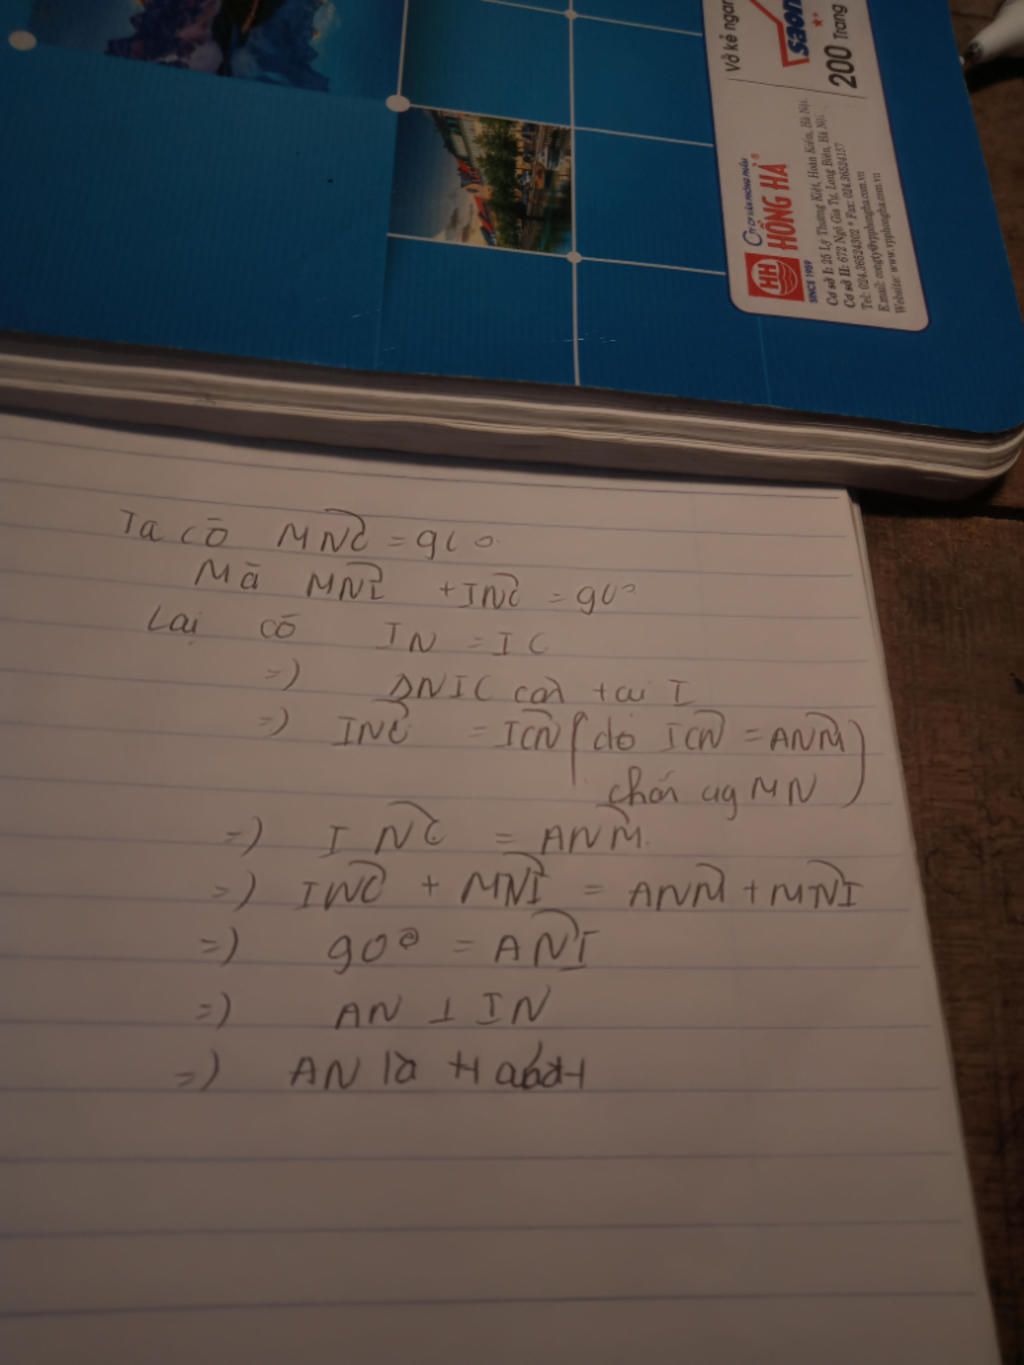 Vở kẻ ngan
saon
200 Trang
HH
SINCE 1959
VĂN PHÒNG PHẨM
HỒNG HÀ
Cơ sở I: 25 Lý Thường Kiệt, Hoàn Kiếm, Hà Nội.
Cơ sở II: 672 Ngô Gia Tự, Long Biên, Hà Nội.
Tel: 024.36524302 * Fax: 024.36524157
E.mail: congty@vpphongha.com.vn
Website: www.vpphongha.com.vn
Ta có MNC = 90
Mà MNI + INC = 90°
Lại có IN = IC
=) ΔNIC cân tại I
=) INC = ICN (do ICN = ANM
chắn cug MN)
=) INC = ANM.
=) INC + MNI = ANM + MNI
=) 90° = ANI
=) AN ⊥ IN
=) AN là